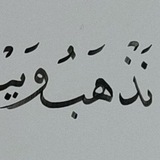 نَذْهَبُ وَيَـ